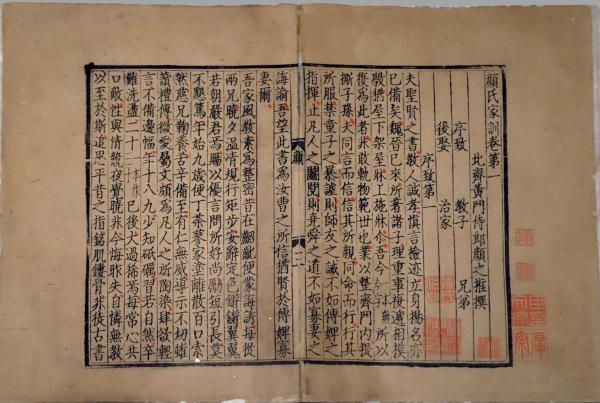 顔氏家訓卷第一
北齊黃門侍郎顔之推撰
序致 教子 兄弟
後娶 治家
序致第一
夫聖賢之書教人誠孝慎言檢迹立身揚名亦
已備矣魏晉已來所著諸子理重事複遞相摸
斆猶屋下架屋牀上施牀尒吾今所以
復爲此者非敢軌物範世也業以整齊門内提
撕子孫夫同言而信信其所親同命而行行其
所服禁童子之暴謔則師友之誡不如傅婢之
指揮止凡人之鬬鬩則堯舜之道不如寡妻之
誨諭吾望此書爲汝曹之所信猶賢於傅婢寡
妻爾
顔
吾家風教素爲整密昔在齠齔便蒙誨誘每從
兩兄曉夕溫凊規行矩步安辭定色鏘鏘翼翼
若朝嚴君焉賜以優言問所好尚勵短引長莫
不懇篤年始九歲便丁荼蓼家塗離散百口索
然慈兄鞠養苦辛備至有仁無威導示不切雖
讀禮傳微愛屬文頗爲凡人之所陶染肆欲輕
言不備邊幅年十八九少知砥礪習若自然卒
難洗盪二十已後大過稀焉每常心共
口敵性與情競夜覺曉非今悔昨失自憐無教
以至於斯追思平昔之指銘肌鏤骨非徒古書